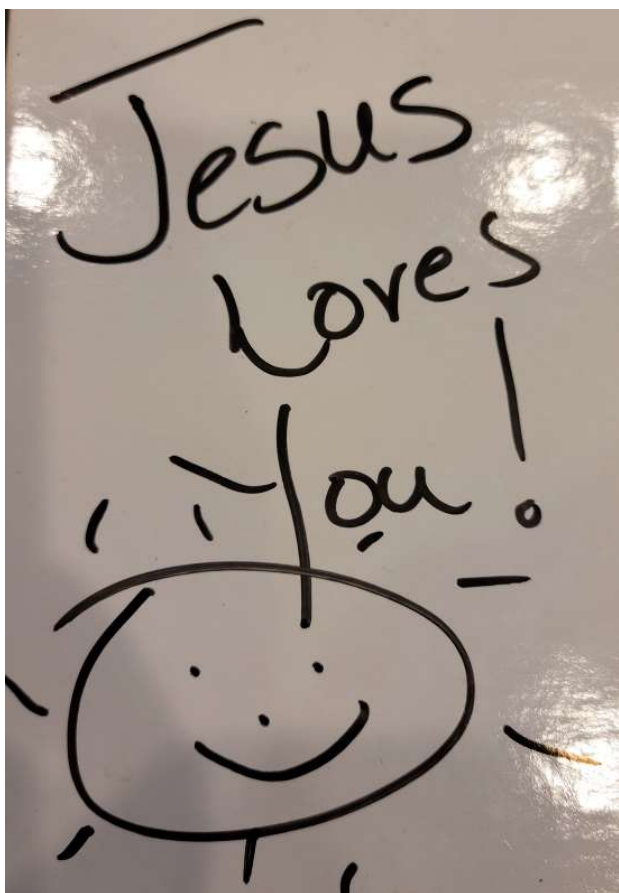 Jesus
Loves
You!